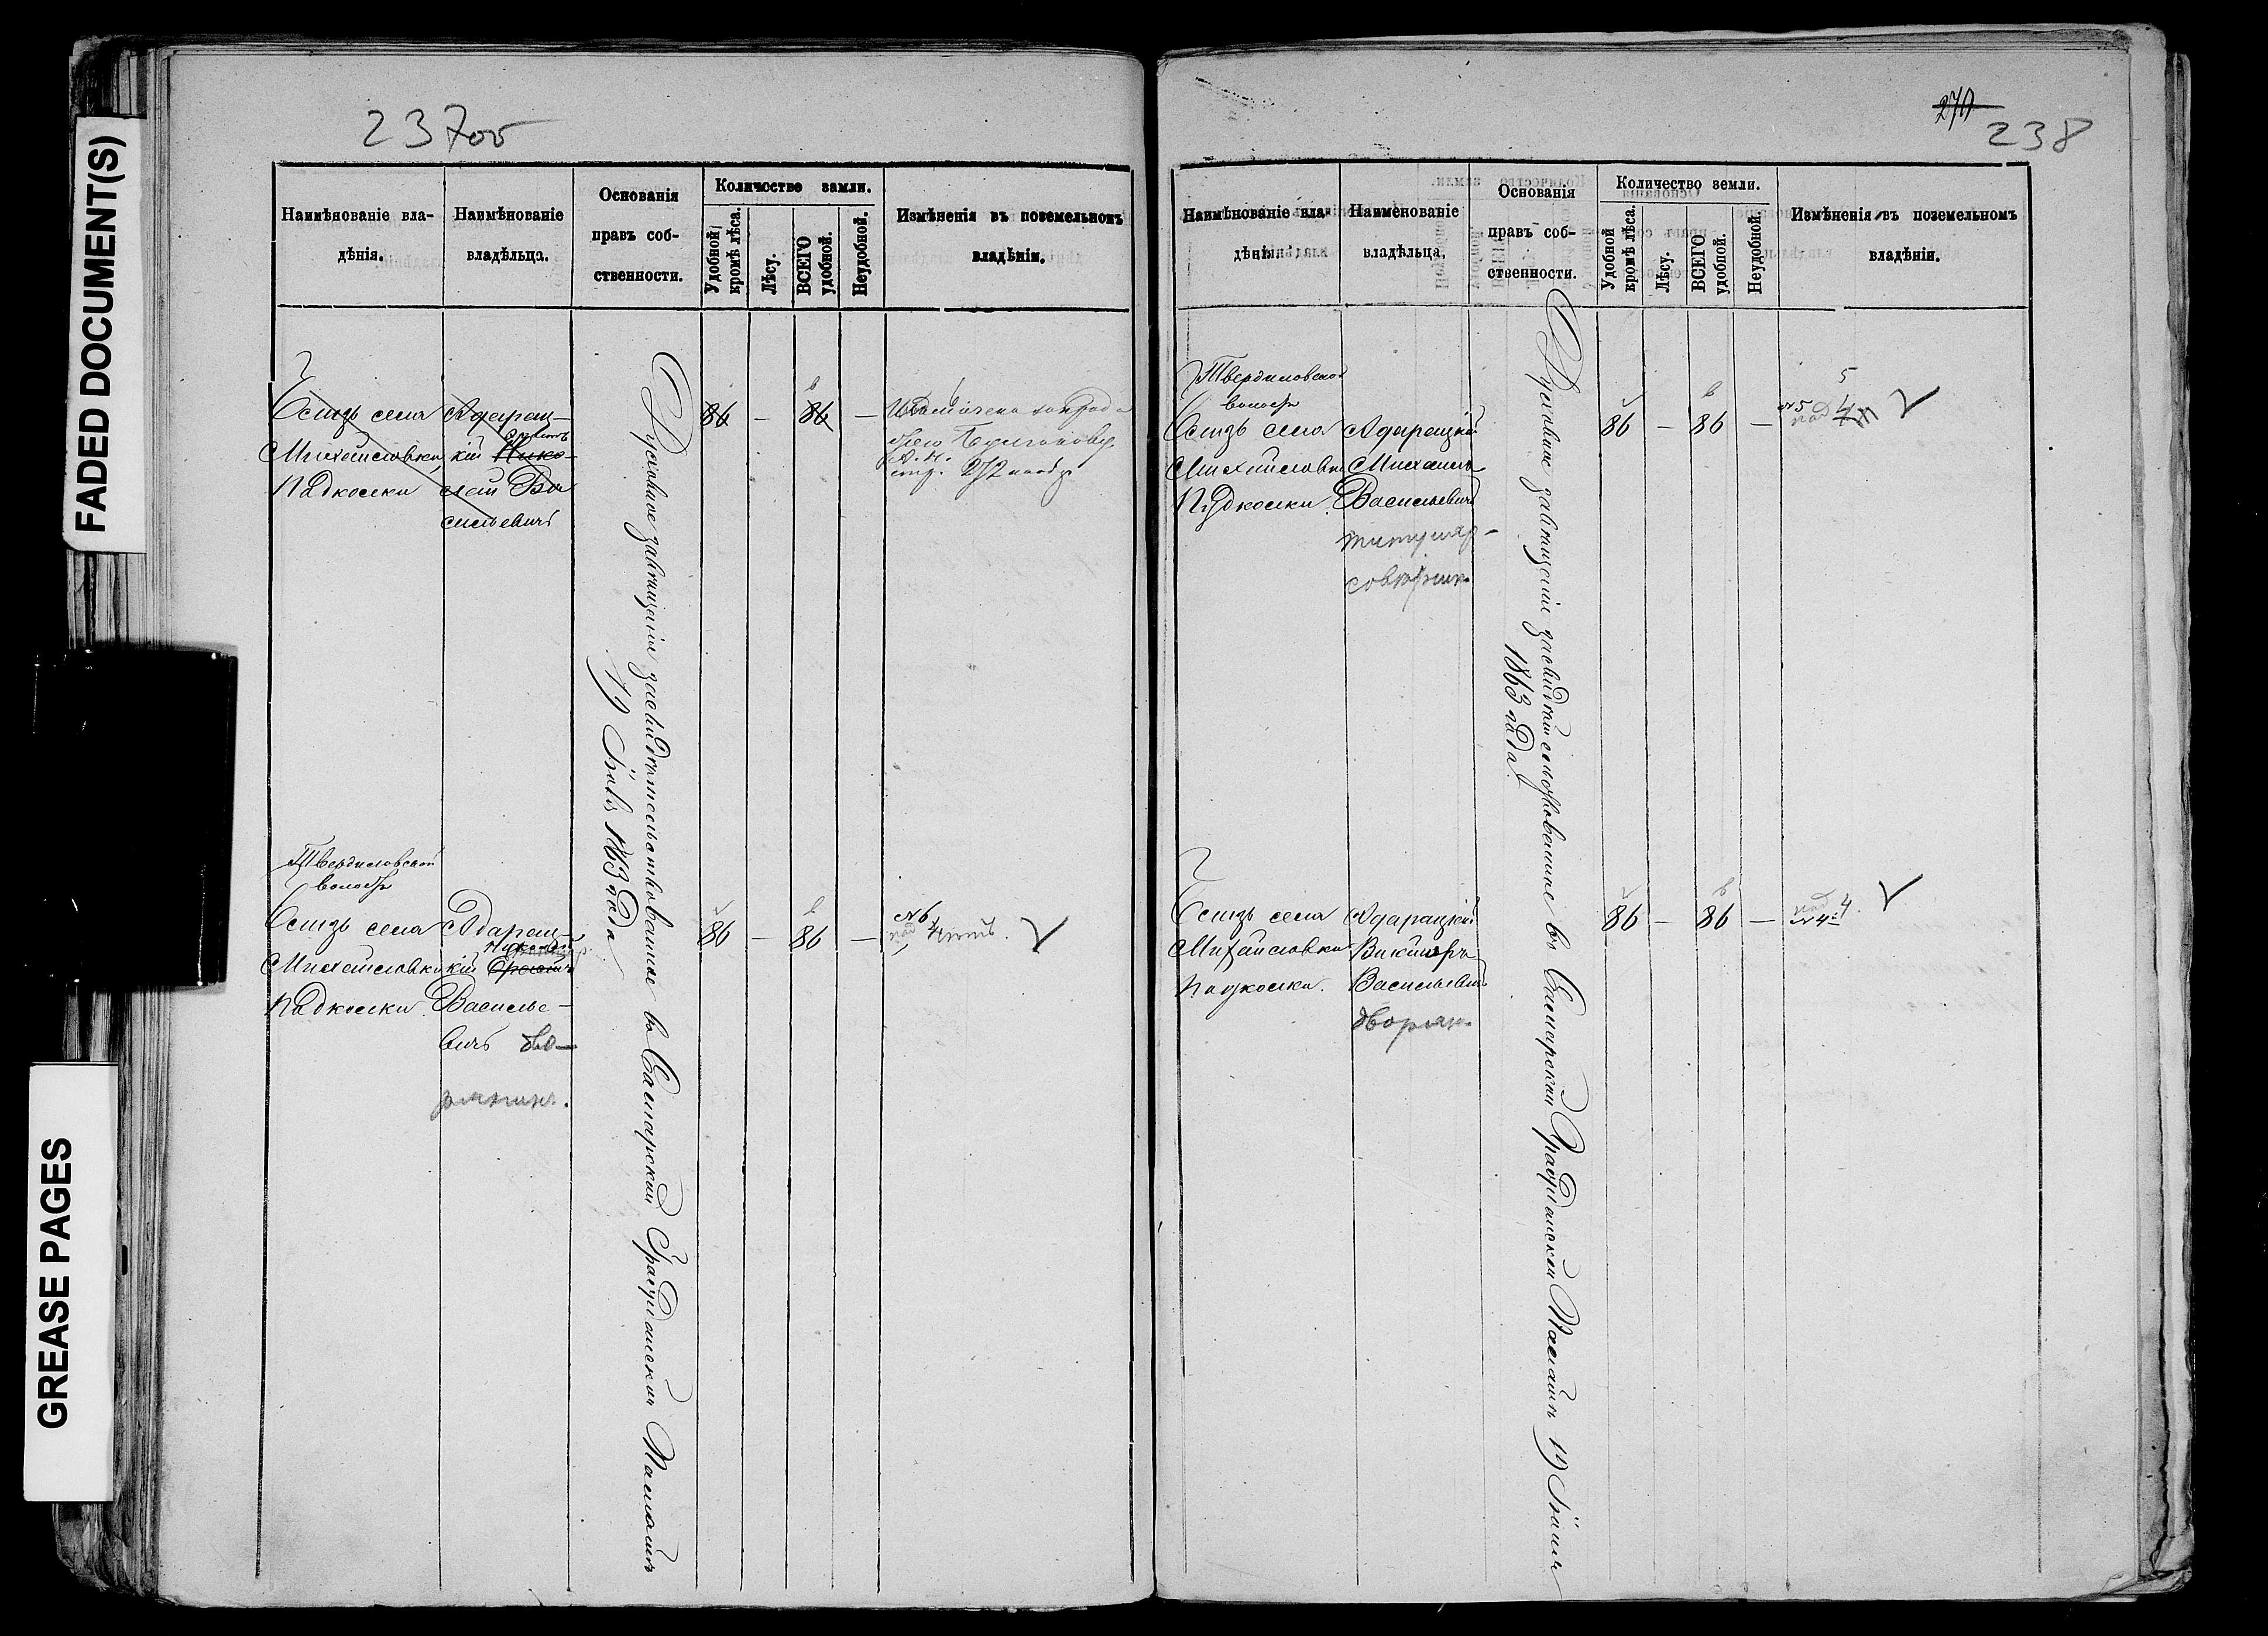 FADED DOCUMENT(S)
GREASE PAGES
237об
Наимѣнованіе вла-
дѣнія.
Наимѣнованіе
владѣльца.
Основанія
правъ соб-
ственности.
Количество земли.
Удобной
кромѣ лѣса.
Лѣсу.
ВСЕГО
удобной.
Неудобной.
Измѣненія въ поземельномъ
владѣніи.
Близь села
Михайловки
Падкомки
Адарац-
кій Нико-
лай Ва
сильевичъ
Духовное завѣщаніе засвидѣтельствованное въ Самарской Гражданской Палатѣ
19 Іюля 1863 года
86 — 86 —
стр. 272
Твердиловской
волости
Близь села
Михайловки
Падкомки.
Адарац-
кій
Василье-
вичъ дво-
рянинъ.
86 — 86 —
№ 6
270
238
Наимѣнованіе вла-
дѣнія.
Наименованіе
владѣльца.
Основанія
правъ соб-
ственности.
Количество земли.
Удобной
кромѣ лѣса.
Лѣсу.
ВСЕГО
удобной.
Неудобной.
Измѣненія въ поземельномъ
владѣніи.
Твердиловской
волости
Близь села
Михайловки
Падкомки.
Адарацкій
Михаилъ
Васильевичъ
титуляр-
совѣтник.
Духовное завѣщаніе засвидѣтельствованное въ Самарской Гражданской Палатѣ 19 Іюля
1863 года.
86 — 86 —
№ 5
5
Близь села
Михайловки
Падкомки.
Адарацкій
Викторъ
Васильевичъ
дворян.
86 — 86 —
№ 4
4